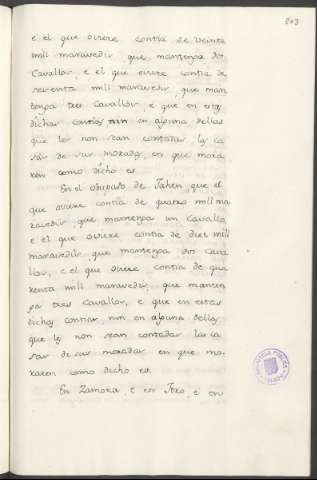 203
e el que oviere contia de veinte
mill maravedis, que mantenga dos
Cavallos, e el que oviere contia de
sesenta mill maravedis, que man
tenga tres Cavallos e que en estas
dichas contias nin en alguna dellas
que les non sean contadas las ca
sas de sus moradas, en que mora
ren como dicho es.
En el obispado de Jahen, que el
que oviere contia de quatro mill ma
ravedis, que mantenga un Cavallo
e el que oviere contia de diez mill
maravedis, que mantenga dos Cava
llos, e el que oviere contia de qua
renta mill maravedis, que manten
ga tres Cavallos, e que en estas
dichas contias, nin en alguna dellas
que les non sean contadas las ca
sas de sus moradas en que mo
raren como dicho es.
En Zamora, e en Toro, e en